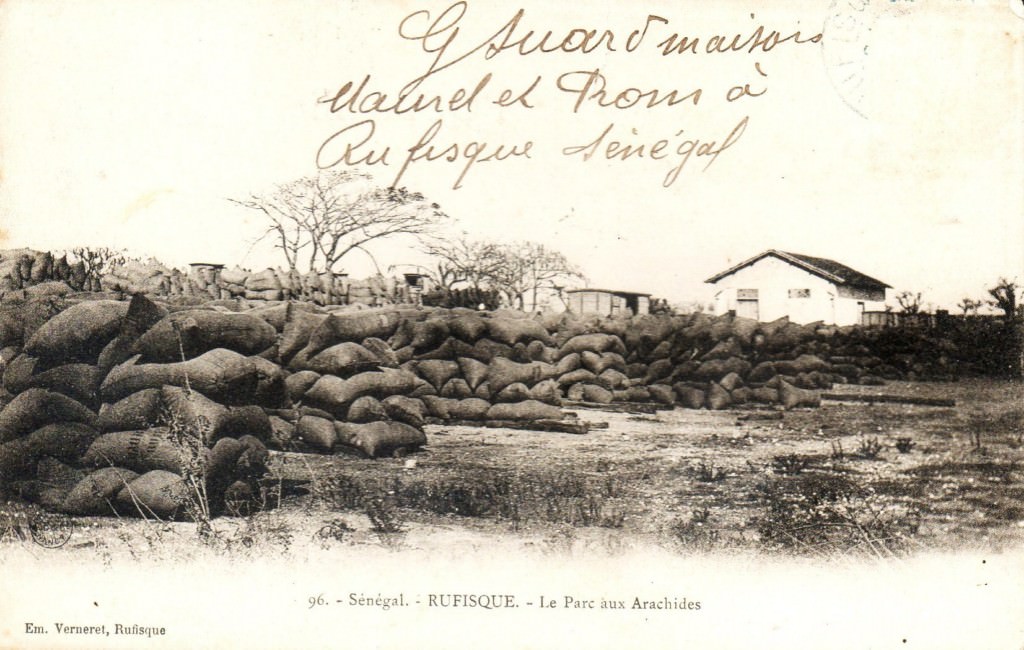 G Suard maison
Maurel et Prom à
Rufisque Sénégal
96. - Sénégal. - RUFISQUE. - Le Parc aux Arachides
Em. Verneret, Rufisque